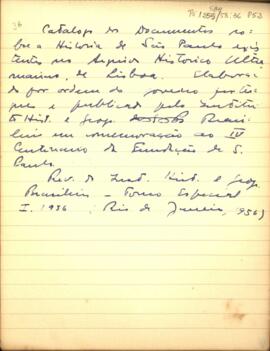 36
Catálogo de Documentos so-
bre a Historia de São Paulo exis-
tentes no Arquivo Historico Ultra
marino, de Lisboa. Elabora-
do por ordem do governo portu-
guês e publicado pelo Institu-
to Hist. e Geogr. Brasi-
leiro em comemoração ao IV
Centenario da Fundação de S.
Paulo.
Rev. do Inst. Hist. e Geogr.
Brasileiro - Tomo Especial
I. 1956 (Rio de Janeiro, 956)